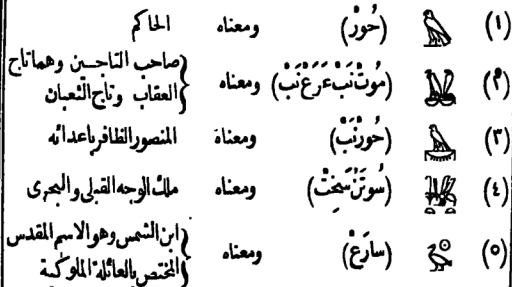 (١) (حُورْ) ومعناه الحاكم
(٢) (مُوتْ نَبْ عَرَعْ نَبْ) ومعناه {صاحب التاجين وهما تاج
العقاب وتاج الثعبان
(٣) (حُورْنَبْ) ومعناه المنصور الظافر باعدائه
(٤) (سُوتَنْ سَخِتْ) ومعناه ملك الوجه القبلى والبحرى
(٥) (سارَعْ) ومعناه {ابن الشمس وهو الاسم المقدس
المختص بالعائلة الملوكية